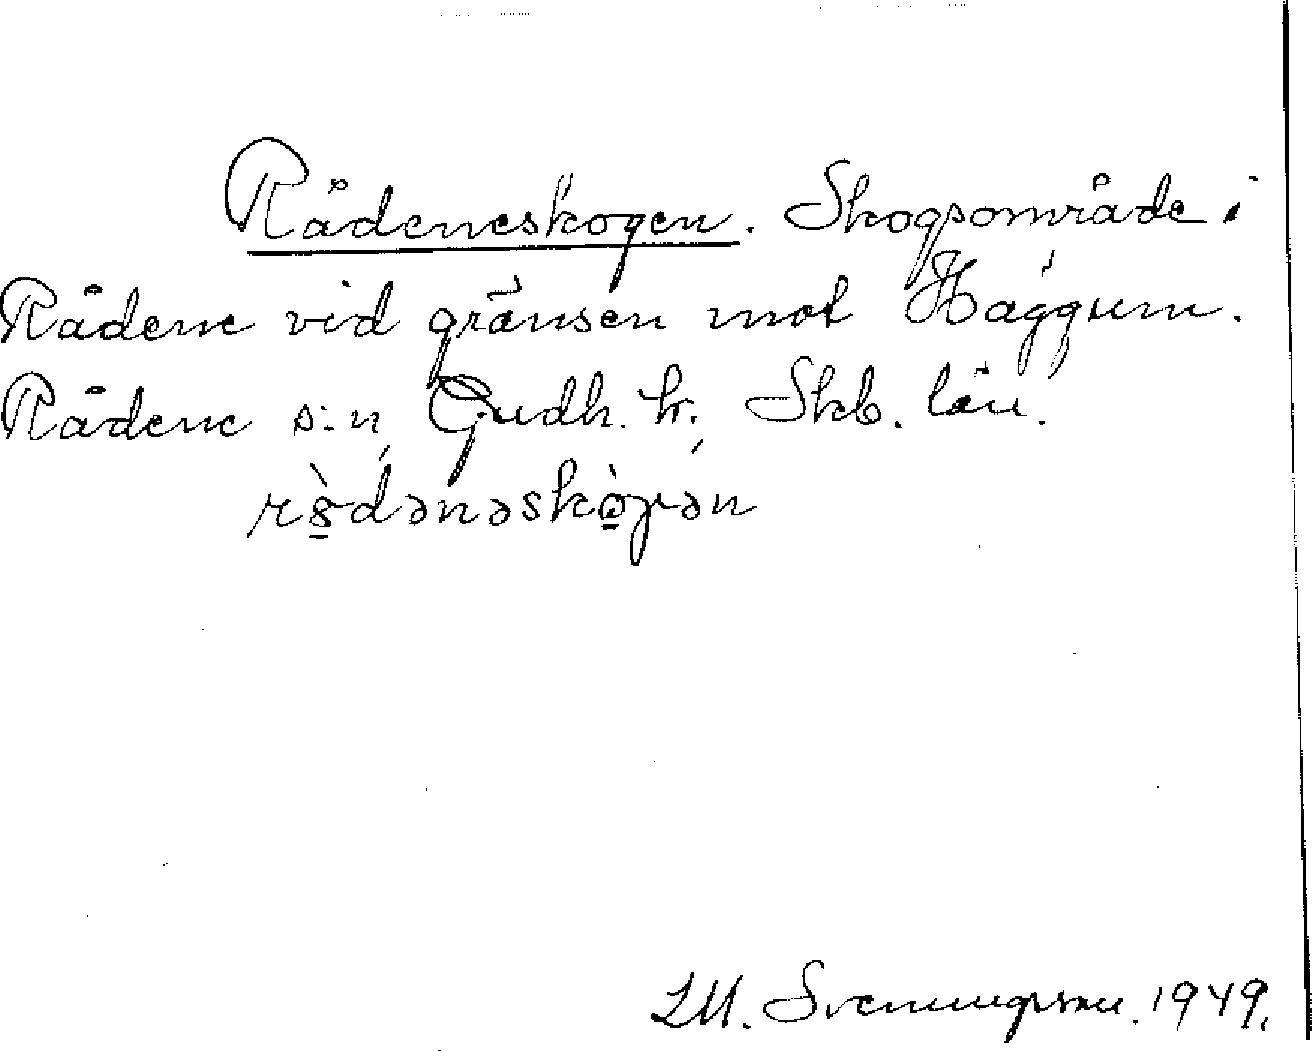 Rådeneskogen. Skogsområde i
Rådene vid gränsen mot Häggum.
Rådene s:n, Gudh. h. Skb. län.
rs̱̀dənəskò̱gən
LM. Svenungsson. 1949.